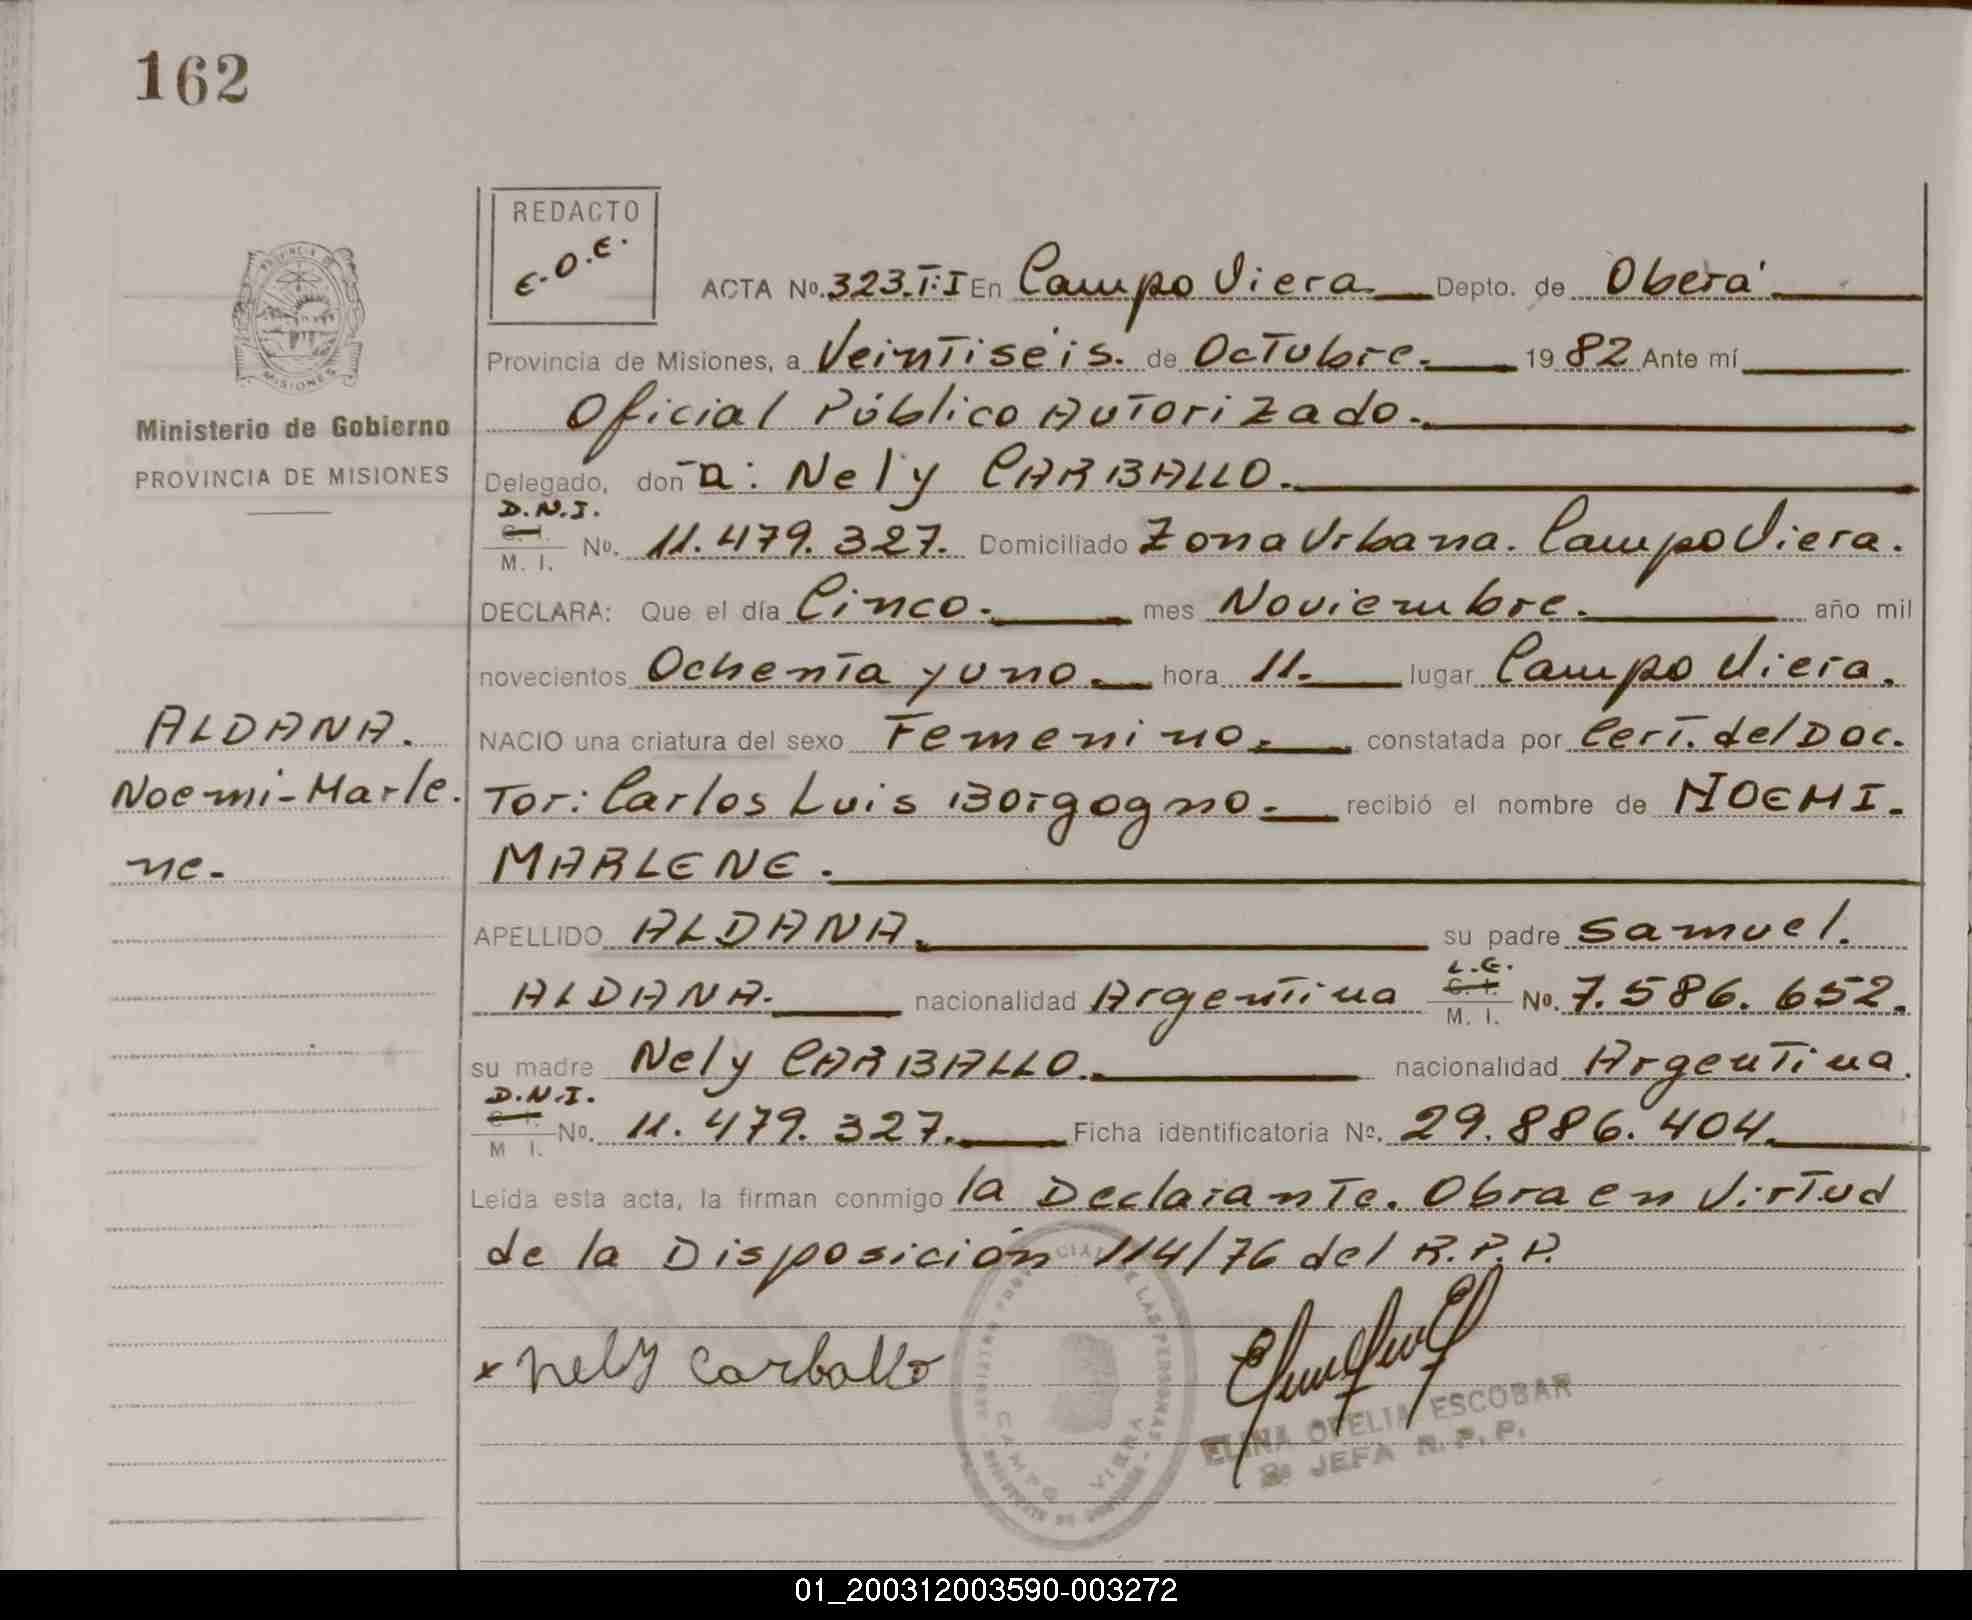 162
REDACTO
E.O.E.
PROVINCIA DE
MISIONES
Ministerio de Gobierno
PROVINCIA DE MISIONES
ACTA No. 323.T:I En Campo Viera. Depto. de Oberá
Provincia de Misiones, a Veintiséis. de Octubre. 1982 Ante mí
Oficial Público Autorizado.
Delegado, doña: Nely CARBALLO.
D.N.I.
C. I.
M. I. No. 11.479.327. Domiciliado Zona Urbana. Campo Viera.
DECLARA: Que el día Cinco. mes Noviembre. año mil
novecientos Ochenta y uno. hora 11. lugar Campo Viera.
ALDANA.
Noemi-Marle.
ne.
NACIO una criatura del sexo Femenino. constatada por Cert. del Doc.
Tor: Carlos Luis Borgogno. recibió el nombre de NOEMI.
MARLENE.
APELLIDO ALDANA. su padre Samuel.
L.E.
ALDANA. nacionalidad Argentina C. I. M. I. No. 7.586.652.
su madre Nely CARBALLO. nacionalidad Argentina.
D.N.I.
C. I.
M I. No. 11.479.327. Ficha identificatoria No. 29.886.404.
Leída esta acta, la firman conmigo la Declarante. Obra en Virtud
de la Disposición 114/76 del R.P.P.
x Nely Carballo
CAMPO VIERA
ELINA OFELIA ESCOBAR
2a JEFA R.P.P.
01_200312003590-003272